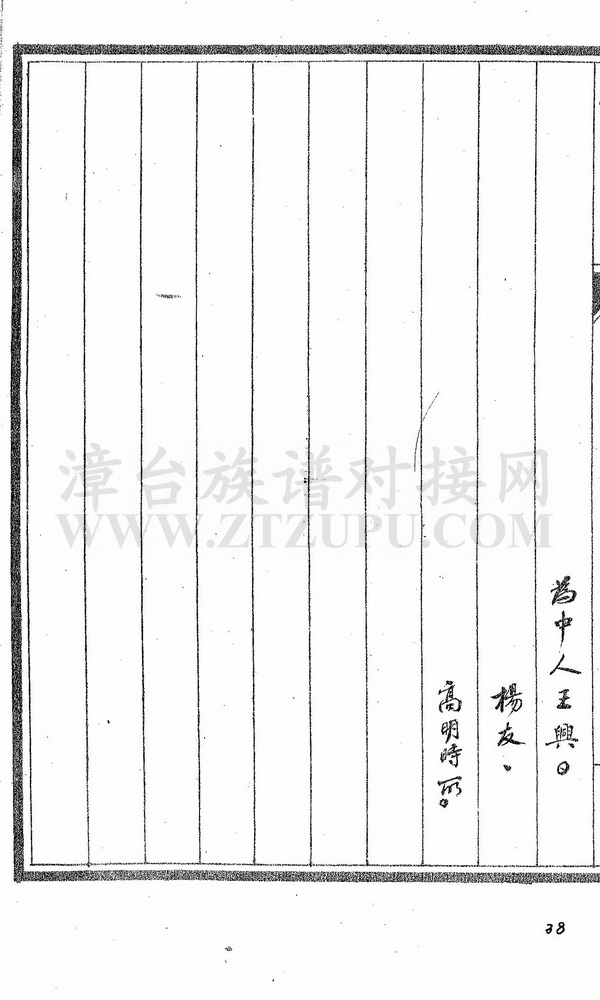 為中人王興
楊友、
高明時
漳台族谱对接网
WWW.ZTZUPU.COM
38